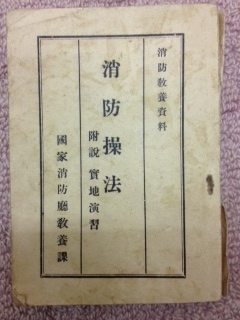 消防教養資料
消防操法
附說 實地演習
國家消防廳教養課